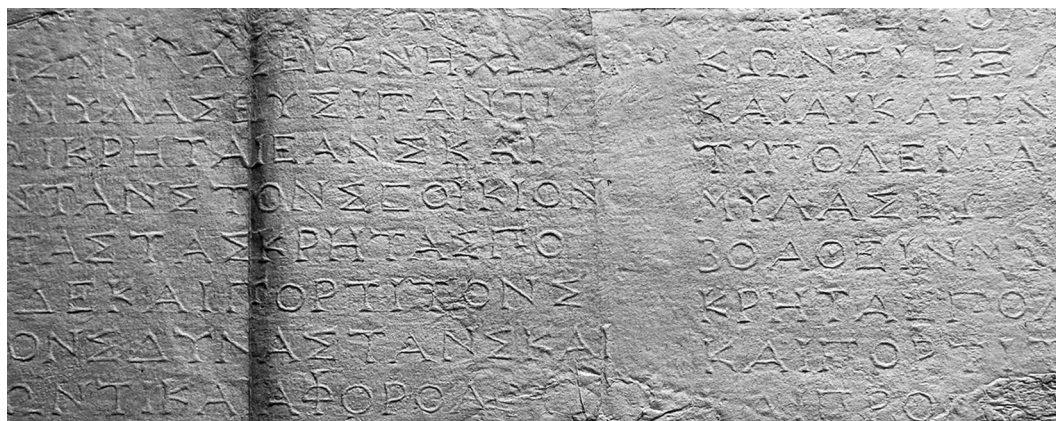 ΑΣΜΥΛΑΣΕΙΩΝΗ
ΜΥΛΑΣΕΥΣΙΠΑΝΤΙ
ΙΚΡΗΤΑΙΕΑΝΣΚΑΙ
ΝΤΑΝΣΤΟΝΣΕΘΙΚΙΟΝ
ΤΑΣΤΑΣΚΡΗΤΑΣΠΟ
ΔΕΚΑΙΓΟΡΤΥΓΟΝΣ
ΟΝΣΔΥΝΑΣΤΑΝΣΚΑΙ
ΩΝΤΙΚΑΔΑΦΟΡΟΛ
ΚΩΝΤΥΕΞΑ
ΚΑΙΑΙΚΑΤΙΝ
ΤΙΠΟΛΕΜΙΑ
ΜΥΛΑΣΕΩ
ΒΟΑΘΕΙΝΜΥ
ΚΡΗΤΑΙΠΟΛ
ΚΑΙΓΟΡΤΥ
ΠΡΟ